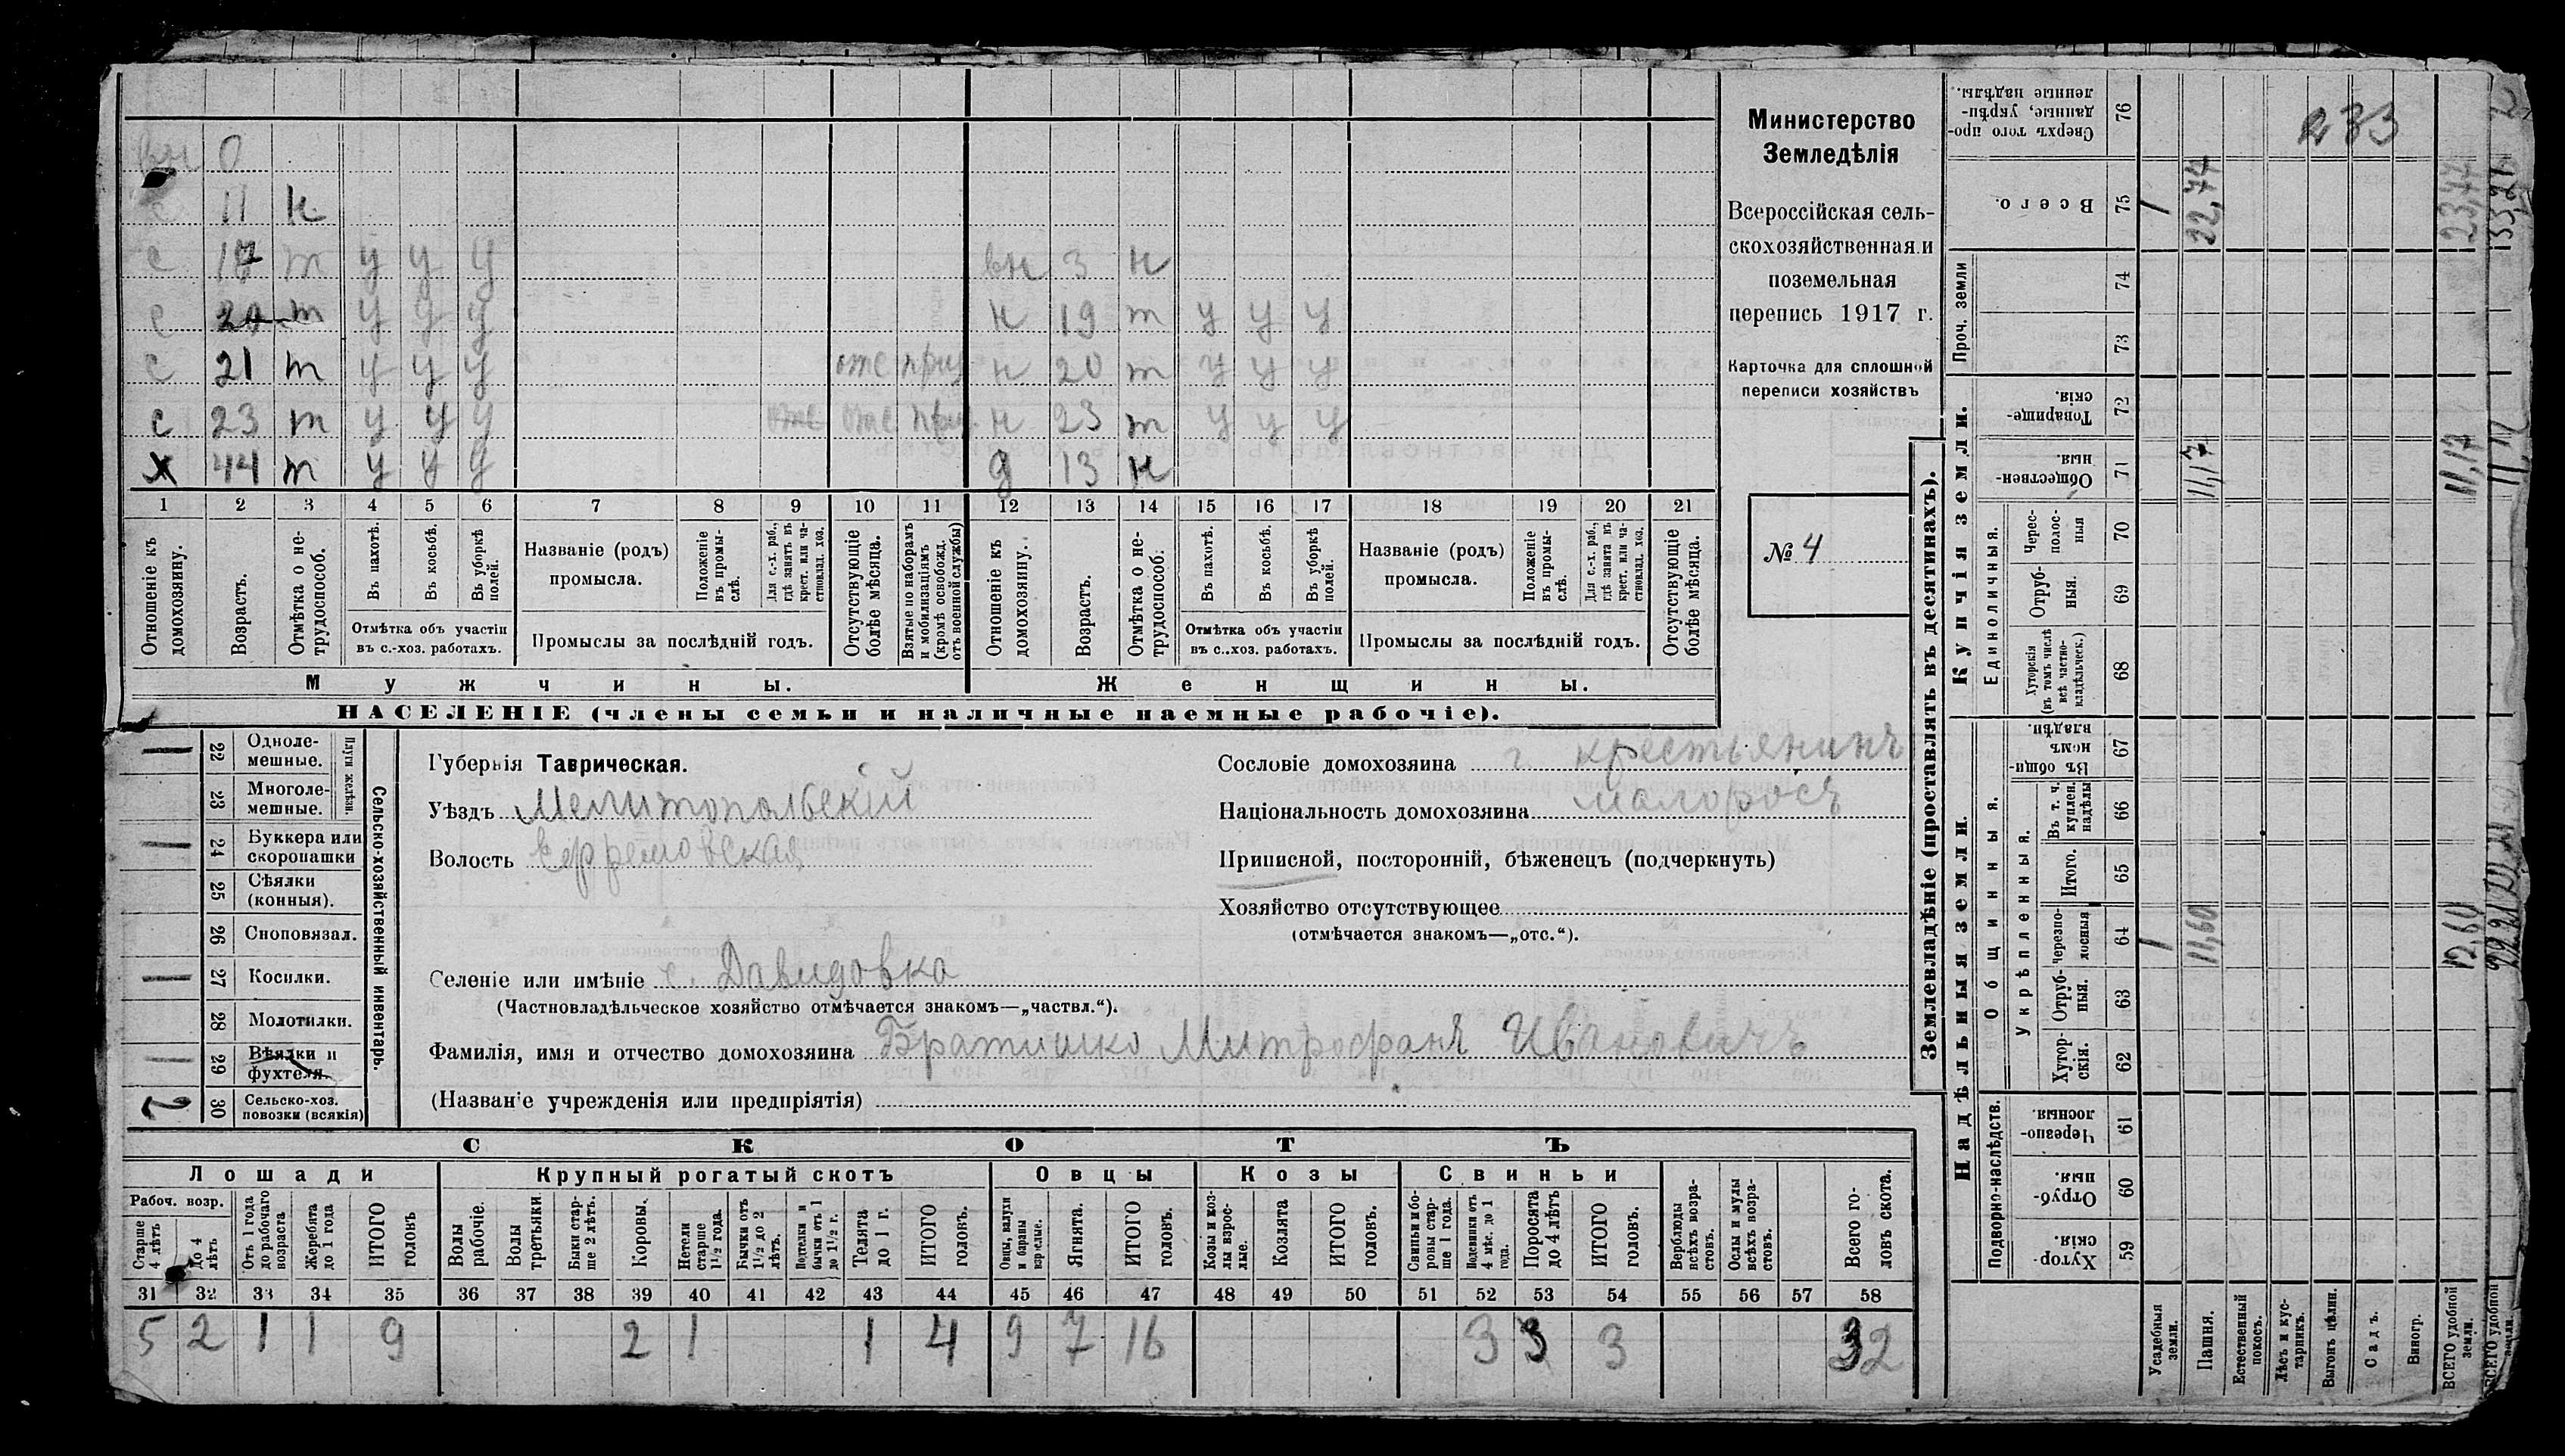 вн 0
с 11 н
с 17 т у у у вн 3 н
с 20 т у у у н 19 т у у у
с 21 т у у у отс приз н 20 т у у у
с 23 т у у у отс отс приз н 23 т у у у
х 44 т у у у д 13 н
1 2 3 4 5 6 7 8 9 10 11 12 13 14 15 16 17 18 19 20 21
Отношеніе къ домохозяину.
Возрастъ.
Отмѣтка о не-трудоспособ.
Въ пахотѣ.
Въ косьбѣ.
Въ уборкѣ полей.
Отмѣтка объ участіи въ с.-хоз. работахъ.
Названіе (родъ) промысла.
Положеніе въ промы-слѣ.
Для с.-х. раб., гдѣ занятъ въ крест. или ча-стновлад. хоз.
Промыслы за послѣдній годъ.
Отсутствующіе болѣе мѣсяца.
Взятые по наборамъ и мобилизаціямъ (кромѣ освобожд. отъ военной службы)
Отношеніе къ домохозяину.
Возрастъ.
Отмѣтка о не-трудоспособ.
Въ пахотѣ.
Въ косьбѣ.
Въ уборкѣ полей.
Отмѣтка объ участіи въ с..хоз. работахъ.
Названіе (родъ) промысла.
Положеніе въ промы-слѣ.
Для с.-х. раб., гдѣ занята въ крест. или ча-стновлад. хоз.
Промыслы за послѣдній годъ.
Отсутствующіе болѣе мѣсяца.
Мужчины. Женщины.
НАСЕЛЕНІЕ (члены семьи и наличные наемные рабочіе).
Министерство
Земледѣлія
Всероссійская сель-
скохозяйственная и
поземельная
перепись 1917 г.
Карточка для сплошной
переписи хозяйствъ
№ 4
Сельско-хозяйственный инвентарь.
Плуги желѣзн.
22 Одноле-мешные.
23 Многоле-мешные.
24 Буккера или скоропашки
25 Сѣялки (конныя).
26 Сноповязал.
27 Косилки.
28 Молотилки.
29 Вѣялки и фухтеля.
2 30 Сельско-хоз. повозки (всякія)
Губернія Таврическая.
Уѣздъ Мелитопольскій
Волость Ефремовская
Сословіе домохозяина крестьянинъ
Національность домохозяина малороссъ
Приписной, посторонній, бѣженецъ (подчеркнуть)
Хозяйство отсутствующее
(отмѣчается знакомъ—„отс.“).
Селеніе или имѣніе с. Давидовка
(Частновладѣльческое хозяйство отмѣчается знакомъ—„частвл.“).
Фамилія, имя и отчество домохозяина Братишко Митрофанъ Ивановичъ
(Названіе учрежденія или предпріятія)
СКОТЪ
Лошади Крупный рогатый скотъ Овцы Козы Свиньи
Рабоч. возр.
Старше 4 лѣтъ
До 4 лѣтъ
Отъ 1 года до рабочаго возраста
Жеребята до 1 года
ИТОГО головъ
Волы рабочіе.
Волы третьяки
Быки стар-ше 2 лѣтъ.
Коровы.
Нетели старше 1½ года.
Бычки отъ 1½ до 2 лѣтъ.
Подтелки и бычки отъ 1 до 1½ г.
Телята до 1 г.
ИТОГО головъ.
Овцы, валухи и бараны взрослые.
Ягнята.
ИТОГО головъ.
Козы и коз-лы взрос-лые.
Козлята
ИТОГО головъ.
Свиньи и бо-ровы стар-ше 1 года.
Подсвинки отъ 4 мѣс. до 1 года.
Поросята до 4 лѣтъ
ИТОГО головъ.
Верблюды всѣхъ возра-стовъ.
Ослы и мулы всѣхъ возра-стовъ.
Всего го-ловъ скота.
31 32 33 34 35 36 37 38 39 40 41 42 43 44 45 46 47 48 49 50 51 52 53 54 55 56 57 58
5 2 1 1 9 2 1 1 4 9 7 16 3 3 3 32
Землевладѣніе (проставлять въ десятинахъ).
Купчія земли.
Надѣльныя земли.
Проч. земли
Единоличныя.
Общинныя.
Укрѣпленныя.
Подворно-наслѣдств.
Сверхъ того про-данные, укрѣп-ленные надѣлы. 76 233
Всего. 75 1 22,77 23,77 33,21
74
73
Товарище-скія. 72
Обществен-ныя. 71 11,17 11,17 11,17
Черес-полос-ныя 70
Отруб-ныя. 69
Хуторскія (въ томъ числѣ всѣ частно-владѣльческ.) 68
Въ общи-номъ владѣн. 67
Въ т. ч. куплен. надѣлы 66
Итого. 65
Черезпо-лосныя 64 1 11,60 12,60
Отруб-ныя. 63
Хутор-скія. 62
Черезпо-лосныя. 61
Отруб-ныя 60
Хутор-скія. 59
Усадебныя земли.
Пашня.
Естественный покосъ.
Лѣсъ и кус-тарникъ.
Выгонъ цѣлин.
Садъ.
Виногр.
ВСЕГО удобной земли.
ВСЕГО удобной